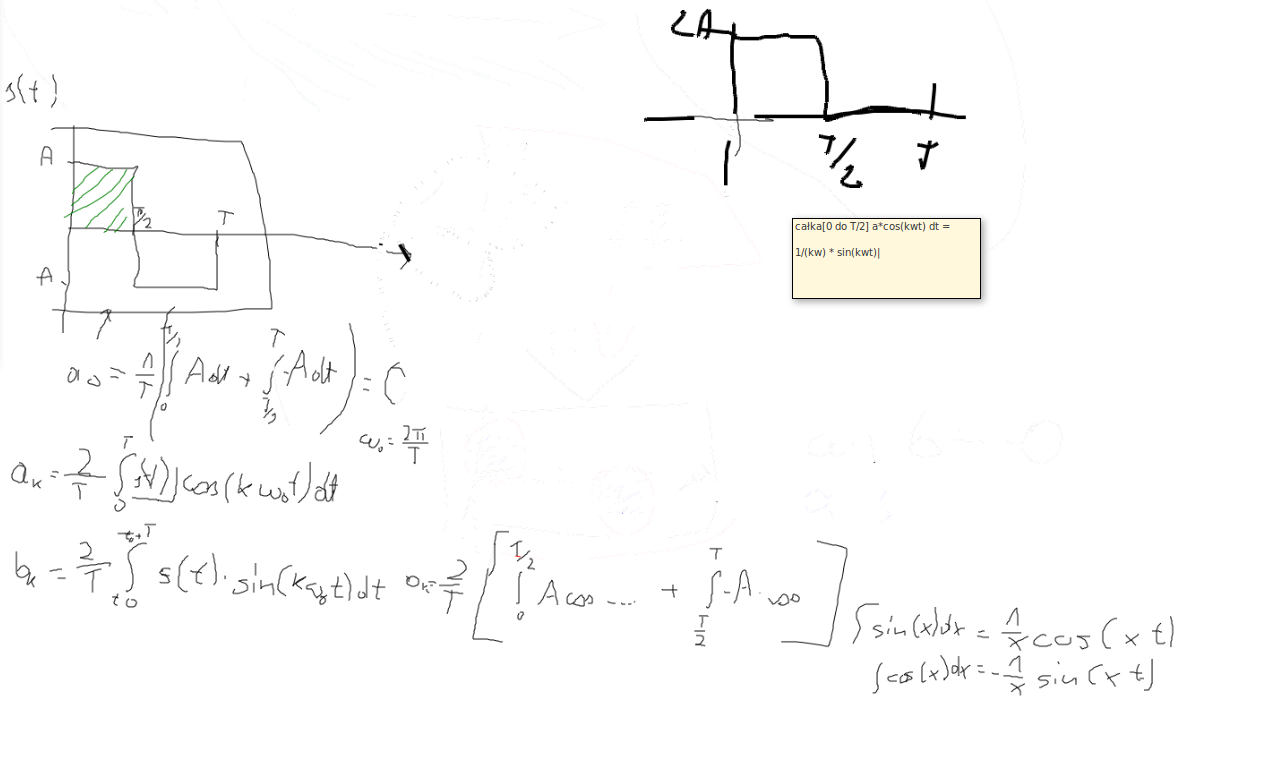 2A
T/2 T
s(t)
A
T/2 T
A
całka[0 do T/2] a*cos(kwt) dt =
1/(kw) * sin(kwt)|
a₀ = 1/T ( ∫₀^{T/2} A dt + ∫_{T/2}^{T} -A dt ) = 0
ω₀ = 2π/T
aₖ = 2/T ∫₀^{T} s(t) cos(k ω₀ t) dt
bₖ = 2/T ∫_{t0}^{t0+T} s(t) · sin(k ω₀ t) dt
aₖ = 2/T [ ∫₀^{T/2} A cos .... + ∫_{T/2}^{T} -A · cos ]
∫ sin(x) dx = 1/x cos(x t)
∫ cos(x) dx = - 1/x sin(x t)